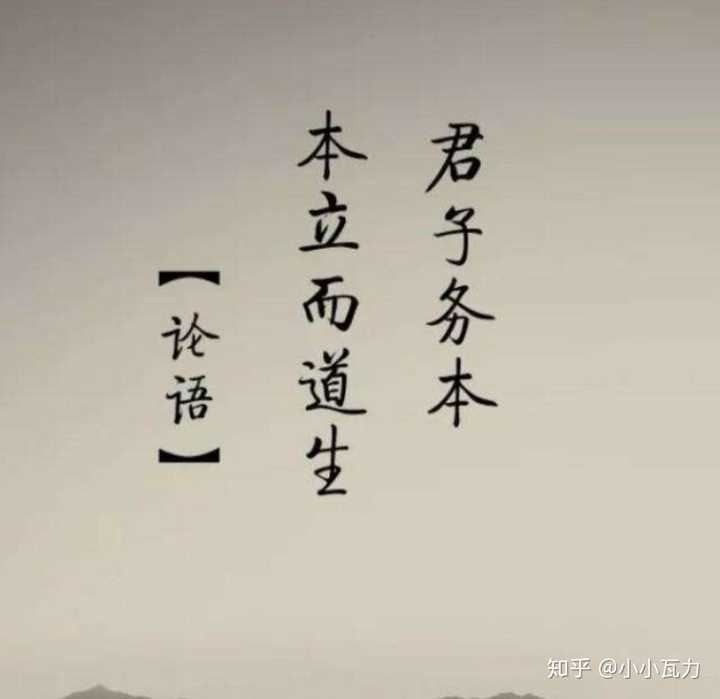 君子务本
本立而道生
【论语】
知乎 @小小瓦力